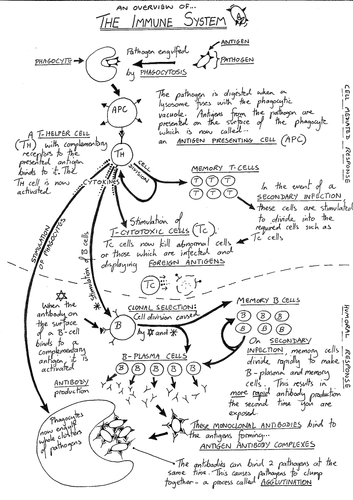 AN OVERVIEW OF...
THE IMMUNE SYSTEM
ANTIGEN
PATHOGEN
PHAGOCYTE
Pathogen engulfed
by PHAGOCYTOSIS
APC
The pathogen is digested when a
lysosome fuses with the phagocytic
vacuole. Antigens from the pathogen are
presented on the surface of the phagocyte
which is now called...
an ANTIGEN PRESENTING CELL (APC)
CELL MEDIATED RESPONSE
A T-HELPER CELL
(TH) with complementary
receptors to the
presented antigen
binds to it. The
TH cell is now
activated
TH
CELL DIVISION
CYTOKINES
MEMORY T-CELLS
T T T
T T T
In the event of a
SECONDARY INFECTION
these cells are stimulated
to divide into the
required cells such as
Tc cells
STIMULATION OF PHAGOCYTES
Stimulation of B cells
Stimulation of
T-CYTOTOXIC CELLS (Tc)
Tc cells now kill abnormal cells
or those which are infected and
displaying FOREIGN ANTIGENS
Tc
HUMORAL RESPONSE
When the
antibody on
the surface
of a B-cell
binds to a
complementary
antigen, it is
activated
B
CLONAL SELECTION:
Cell division caused
by and
MEMORY B CELLS
B B B
B B B
On SECONDARY
INFECTION, memory cells
divide rapidly to make
B-plasma and memory
cells. This results in
more rapid antibody production
the second time you are
exposed
B-PLASMA CELLS
B B B B B
ANTIBODY
production
Phagocytes
now engulf
whole clusters
of pathogens
These MONOCLONAL ANTIBODIES bind to
the antigens forming...
ANTIGEN ANTIBODY COMPLEXES
The antibodies can bind 2 pathogens at the
same time. This causes pathogens to clump
together - a process called AGGLUTINATION